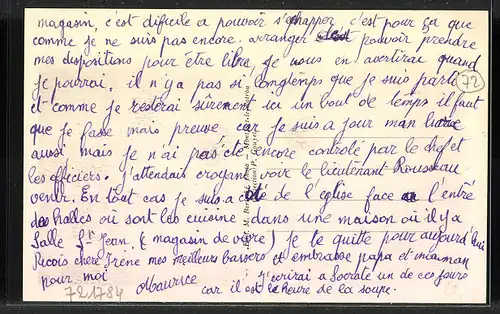 magasin, c'est dificile a pouvoir s'échapper c'est pour ça que
comme je ne suis pas encore arranger pouvoir prendre
mes dispositions pour être libre, je vous en avertirai quand
je pourrai, il n'y a pas si longtemps que je suis parti
et comme je resterai sûrement ici un bout de temps il faut
que je fasse mais preuve car je suis a jour man
aussi mais je n'ai pas été encore controlé par le chef et
les officiers. J'attendais croyant voir le lieutenant Rousseau
venir. En tout cas je suis a côté de l'église face a l'entré
des halles où sont les cuisine dans une maison où il y a
Salle St Jean (magasin de vivre) je te quitte pour aujourd'hui
Recois chere Irène mes meilleurs baisers et embrasse papa et maman
pour moi Maurice J'écrirai a Socrate un de ces jours
car il est l'heure de la soupe.
72
721784